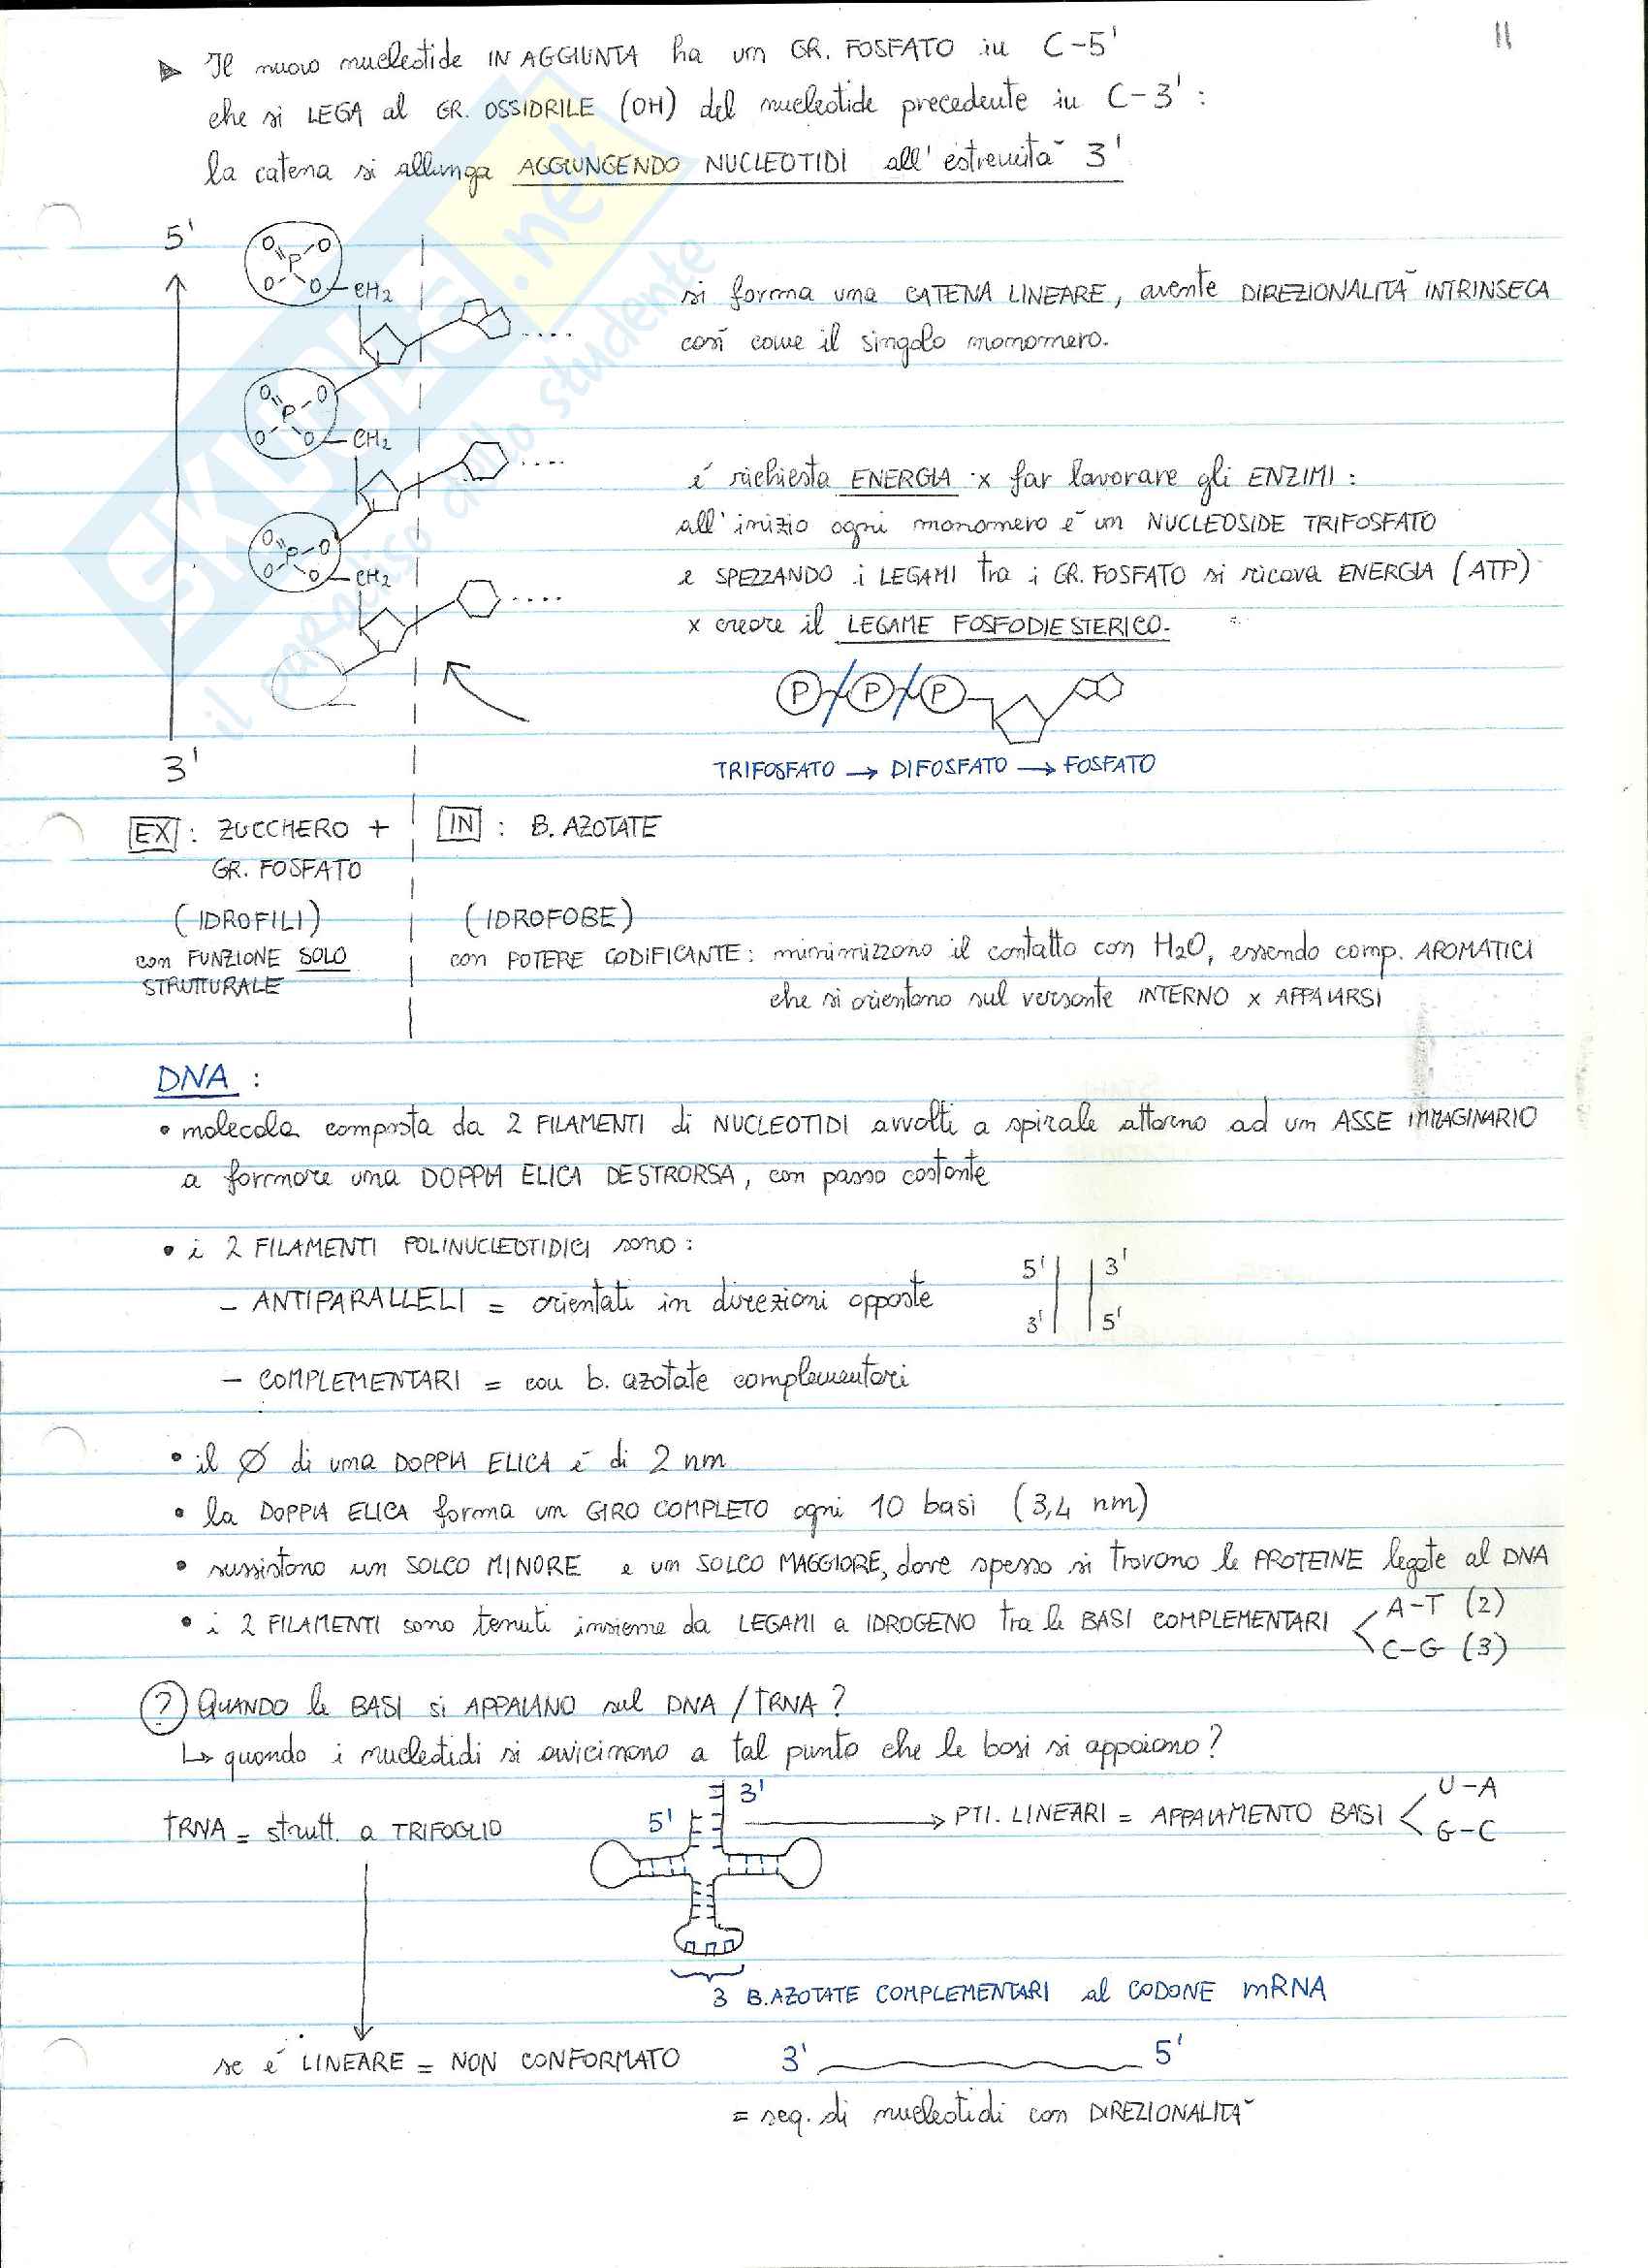 11
▶ Il nuovo nucleotide IN AGGIUNTA ha un GR. FOSFATO in C-5'
che si LEGA al GR. OSSIDRILE (OH) del nucleotide precedente in C-3' :
la catena si allunga AGGIUNGENDO NUCLEOTIDI all'estremità 3'
5'
O O
P
O O CH2
si forma una CATENA LINEARE, avente DIREZIONALITÀ INTRINSECA
così come il singolo monomero.
O O
P
O O CH2
é richiesta ENERGIA x far lavorare gli ENZIMI :
all'inizio ogni monomero é un NUCLEOSIDE TRIFOSFATO
O O
P
O O CH2
e SPEZZANDO i LEGAMI tra i GR. FOSFATO si ricava ENERGIA (ATP)
x creare il LEGAME FOSFODIESTERICO.
P P P
3'
TRIFOSFATO → DIFOSFATO → FOSFATO
EX : ZUCCHERO +
GR. FOSFATO
IN : B. AZOTATE
(IDROFILI)
con FUNZIONE SOLO
STRUTTURALE
(IDROFOBE)
con POTERE CODIFICANTE : minimizzono il contatto con H2O, essendo comp. AROMATICI
che si orientano sul versante INTERNO x APPAIARSI
DNA :
• molecola composta da 2 FILAMENTI di NUCLEOTIDI avvolti a spirale attorno ad un ASSE IMMAGINARIO
a formare una DOPPIA ELICA DESTRORSA, con passo costante
• i 2 FILAMENTI POLINUCLEOTIDICI sono :
5' 3'
- ANTIPARALLELI = orientati in direzioni opposte
3' 5'
- COMPLEMENTARI = con b. azotate complementari
• il Ø di una DOPPIA ELICA é di 2 nm
• la DOPPIA ELICA forma un GIRO COMPLETO ogni 10 basi (3,4 nm)
• sussistono un SOLCO MINORE e un SOLCO MAGGIORE, dove spesso si trovano le PROTEINE legate al DNA
• i 2 FILAMENTI sono tenuti insieme da LEGAMI a IDROGENO tra le BASI COMPLEMENTARI < A-T (2)
C-G (3)
? QUANDO le BASI si APPAIANO sul DNA / TRNA ?
↳ quando i nucleotidi si avvicinano a tal punto che le basi si appaiano ?
3'
5'
TRNA = strutt. a TRIFOGLIO
→ PTI. LINEARI = APPAIAMENTO BASI < U-A
G-C
3 B. AZOTATE COMPLEMENTARI al CODONE mRNA
se é LINEARE = NON CONFORMATO
3' 5'
= seq. di nucleotidi con DIREZIONALITÀ
SKUOLA.net
il paradiso dello studente